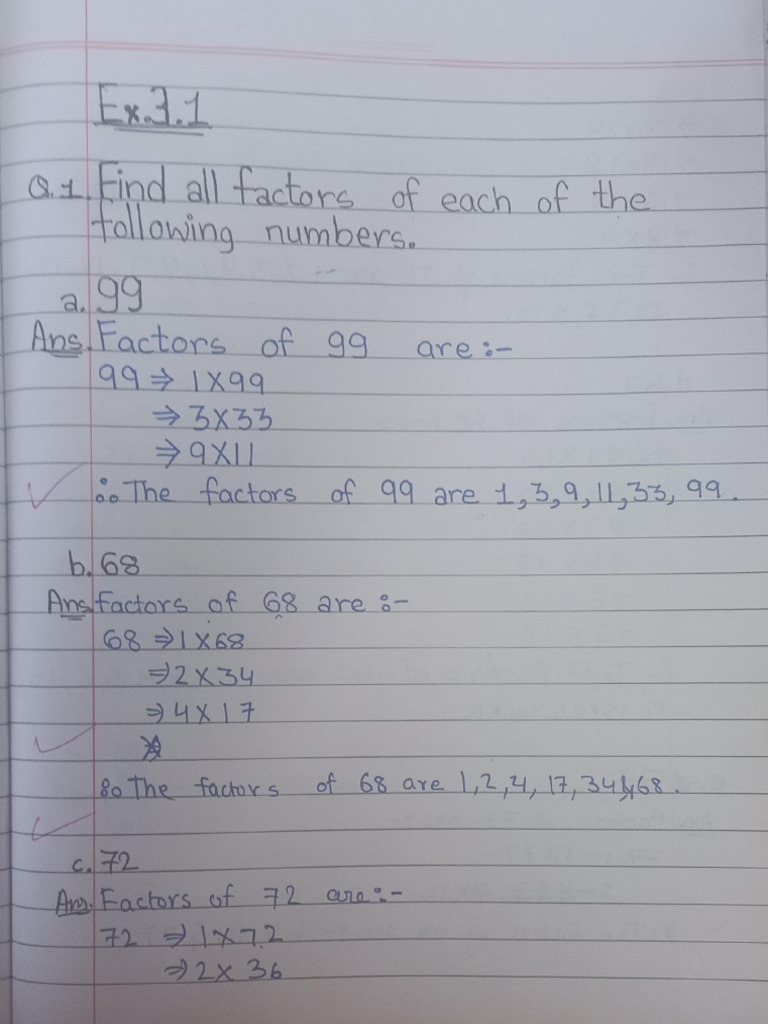 Ex.3.1
Q.1. Find all factors of each of the
following numbers.
a. 99
Ans. Factors of 99 are :-
99 ⇒ 1×99
⇒ 3×33
⇒ 9×11
∴ The factors of 99 are 1,3,9,11,33, 99.
b. 68
Ans. Factors of 68 are :-
68 ⇒ 1×68
⇒ 2×34
⇒ 4×17
∴ The factors of 68 are 1,2,4, 17,34,68.
c. 72
Ans. Factors of 72 are :-
72 ⇒ 1×72
⇒ 2× 36